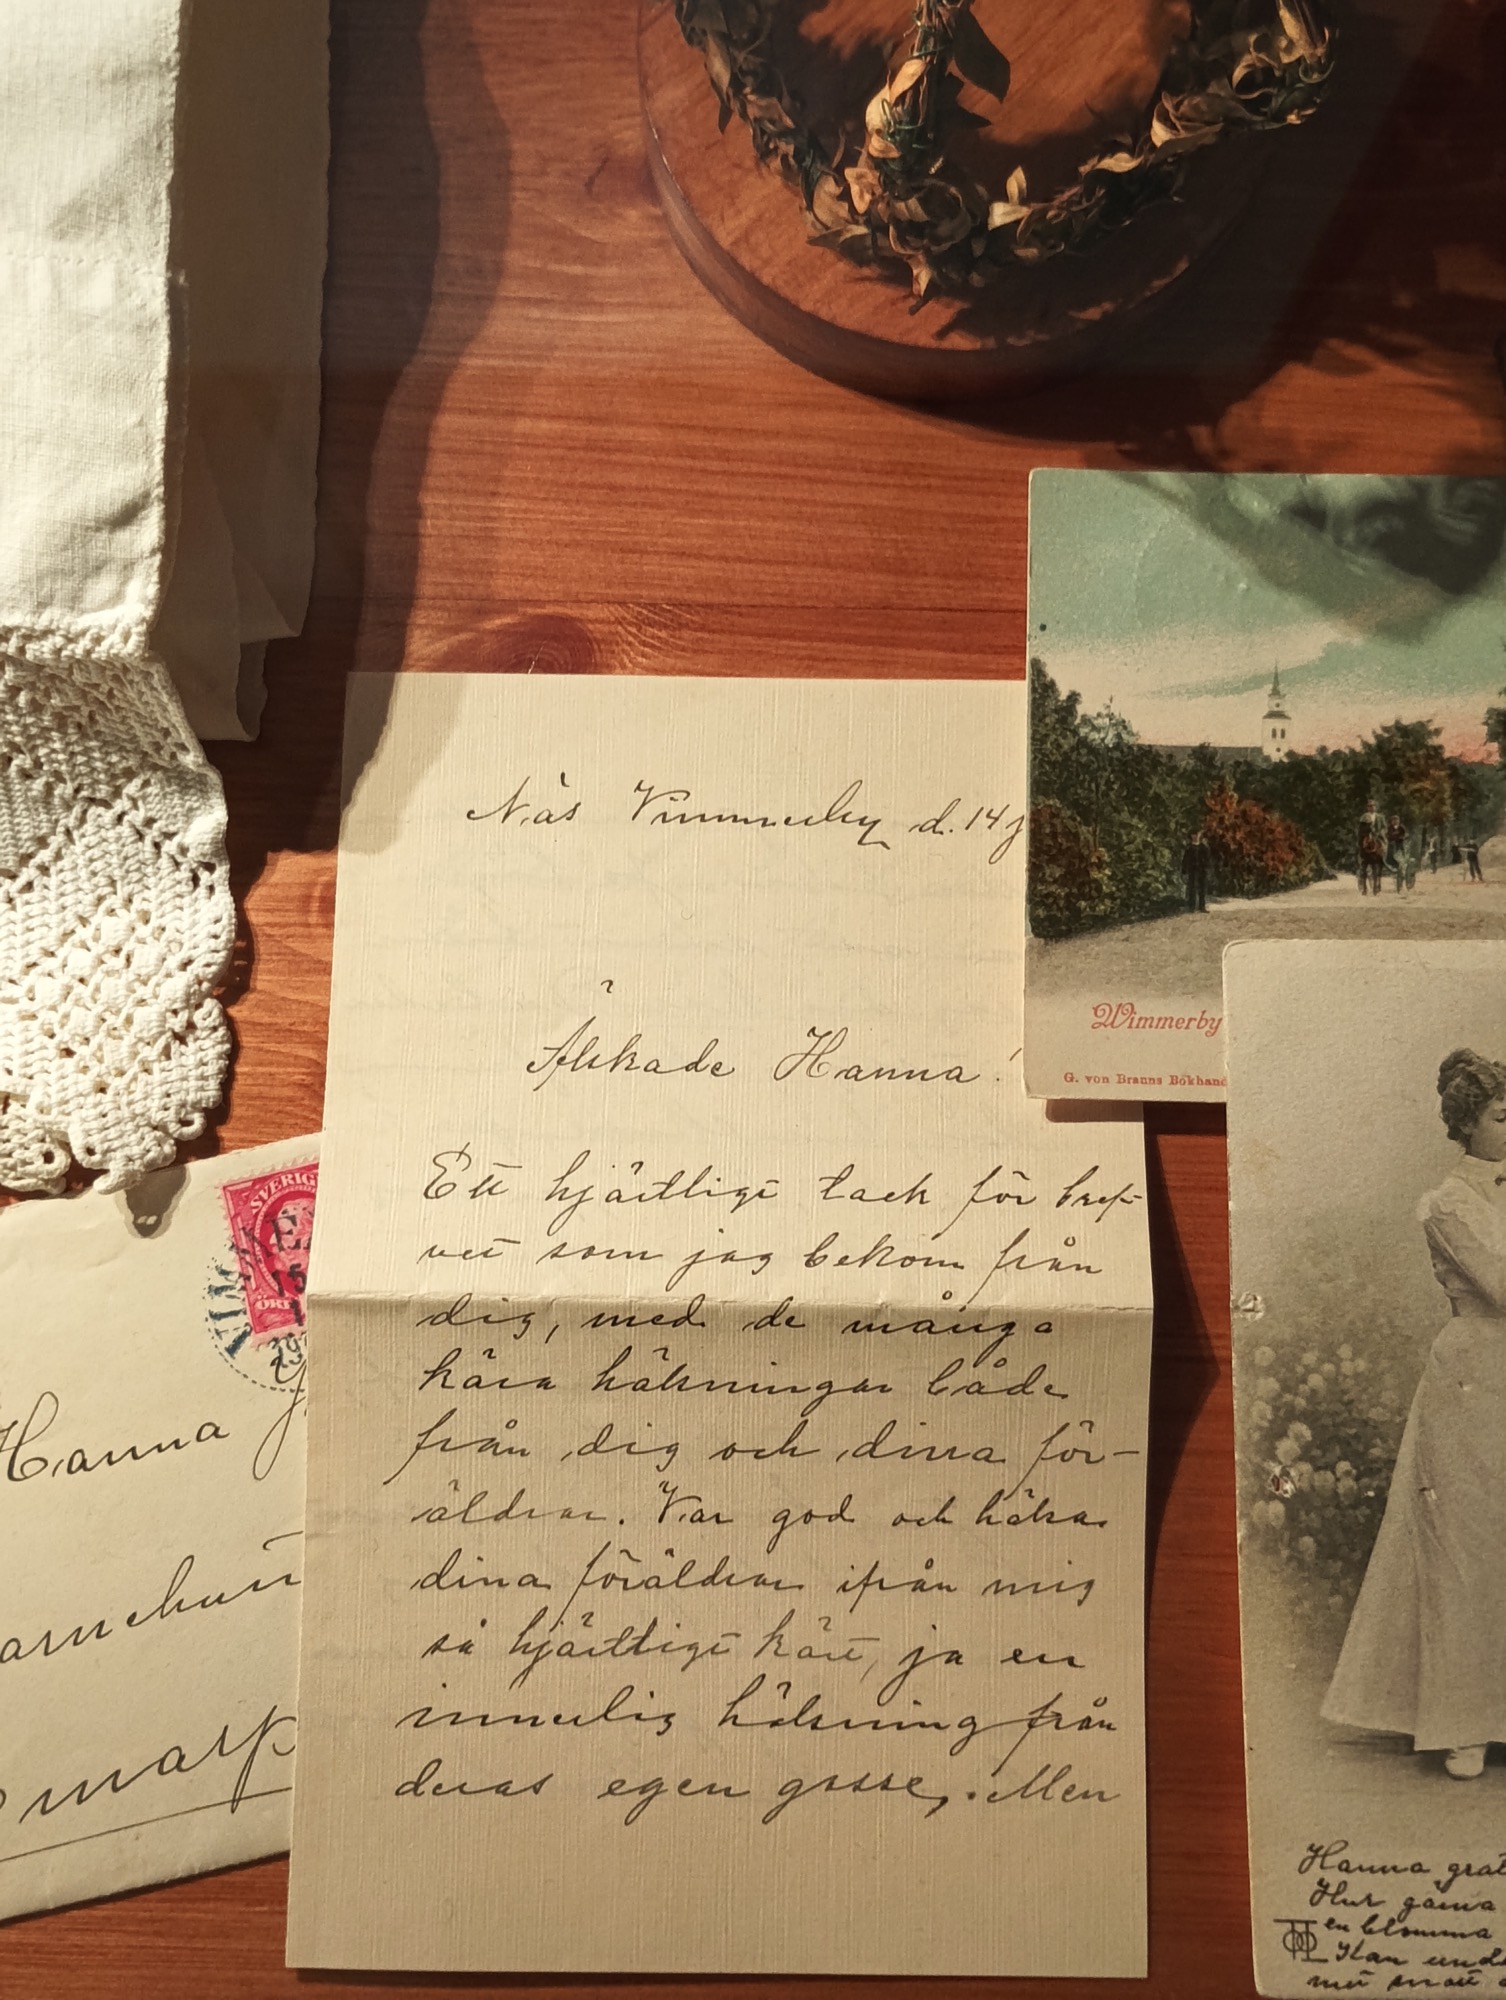 Näs Vimmerby d. 14 j
Älskade Hanna!
Ett hjärtligt tack för bref-
vet som jag bekom från
dig, med de många
kära hälsningar både
från dig och dina för-
äldrar. Var god och hälsa
dina föräldrar ifrån mig
så hjärtligt kärt, ja en
innerlig hälsning från
deras egen gosse,. Men
Wimmerby
G. von Brauns Bokhand
SVERIGE
15
ÖRE
Hanna J
Hanna grat
Hur gärna
en blomma
Han